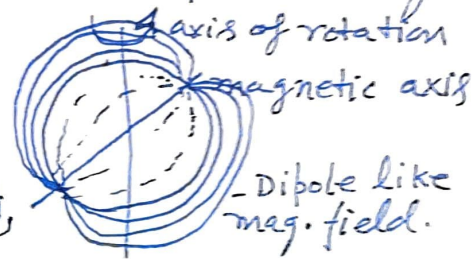 axis of rotation
magnetic axis
- Dipole like
mag. field.